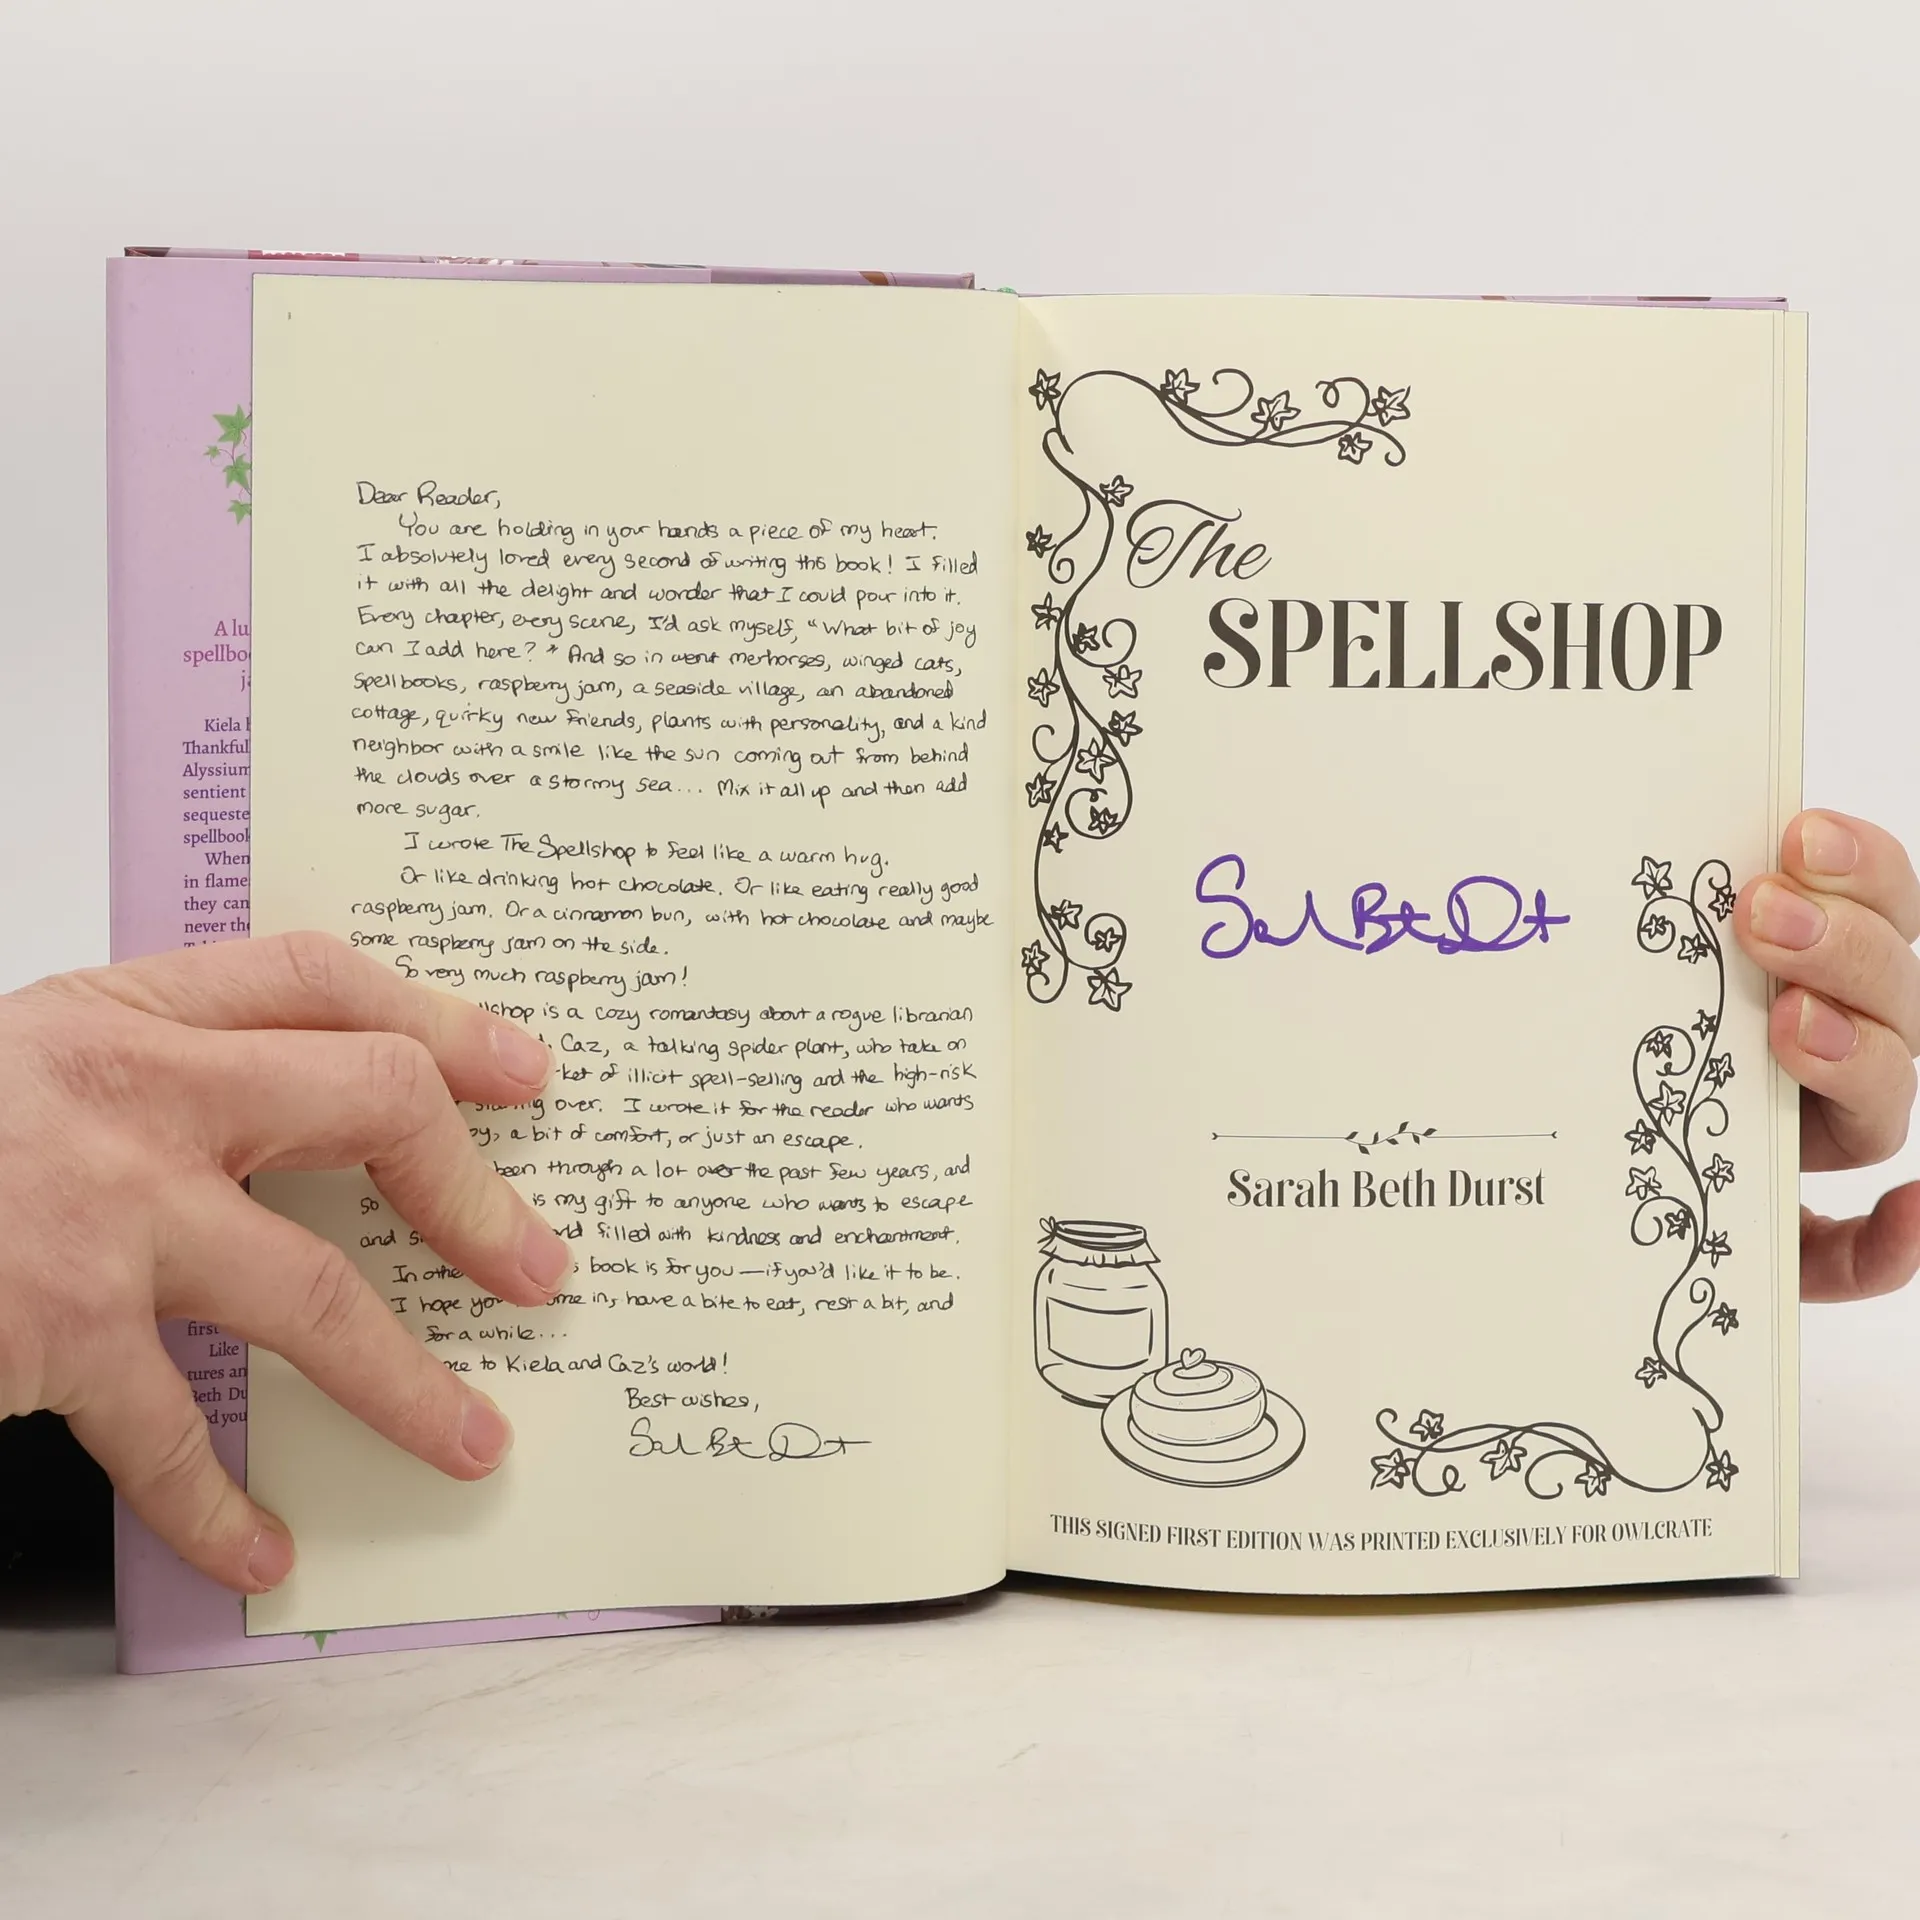 A lu
spellbo
j
Kiela h
Thankful
Alyssium
sentient
sequeste
spellbook
When
in flame
they can
never the
first
Like
tures an
Beth Du
ed you
Dear Reader,
You are holding in your hands a piece of my heart.
I absolutely loved every second of writing this book! I filled
it with all the delight and wonder that I could pour into it.
Every chapter, every scene, I'd ask myself, "What bit of joy
can I add here?" And so in went merhorses, winged cats,
spellbooks, raspberry jam, a seaside village, an abandoned
cottage, quirky new friends, plants with personality, and a kind
neighbor with a smile like the sun coming out from behind
the clouds over a stormy sea... Mix it all up and then add
more sugar.
I wrote The Spellshop to feel like a warm hug.
Or like drinking hot chocolate. Or like eating really good
raspberry jam. Or a cinnamon bun, with hot chocolate and maybe
some raspberry jam on the side.
So very much raspberry jam!
llshop is a cozy romantasy about a rogue librarian
Caz, a talking spider plant, who take on
ket of illicit spell-selling and the high-risk
over. I wrote it for the reader who wants
oy, a bit of comfort, or just an escape.
been through a lot over the past few years, and
so is my gift to anyone who wants to escape
and s rld filled with kindness and enchantment.
In othe s book is for you—if you'd like it to be.
I hope you ome in, have a bite to eat, rest a bit, and
for a while...
me to Kiela and Caz's world!
Best wishes,
Sarah Beth Durst
The
SPELLSHOP
Sarah Beth Durst
Sarah Beth Durst
THIS SIGNED FIRST EDITION WAS PRINTED EXCLUSIVELY FOR OWLCRATE